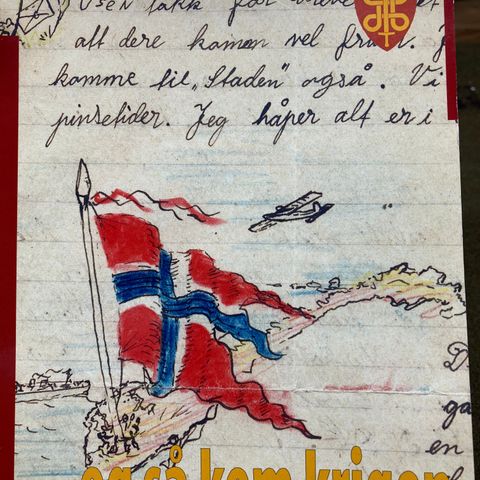 takk for
att dere komen vel
komme til „Staden" også. Vi
pinsetider. Jeg håper alt er i
D
ga
en
og så kom krigen